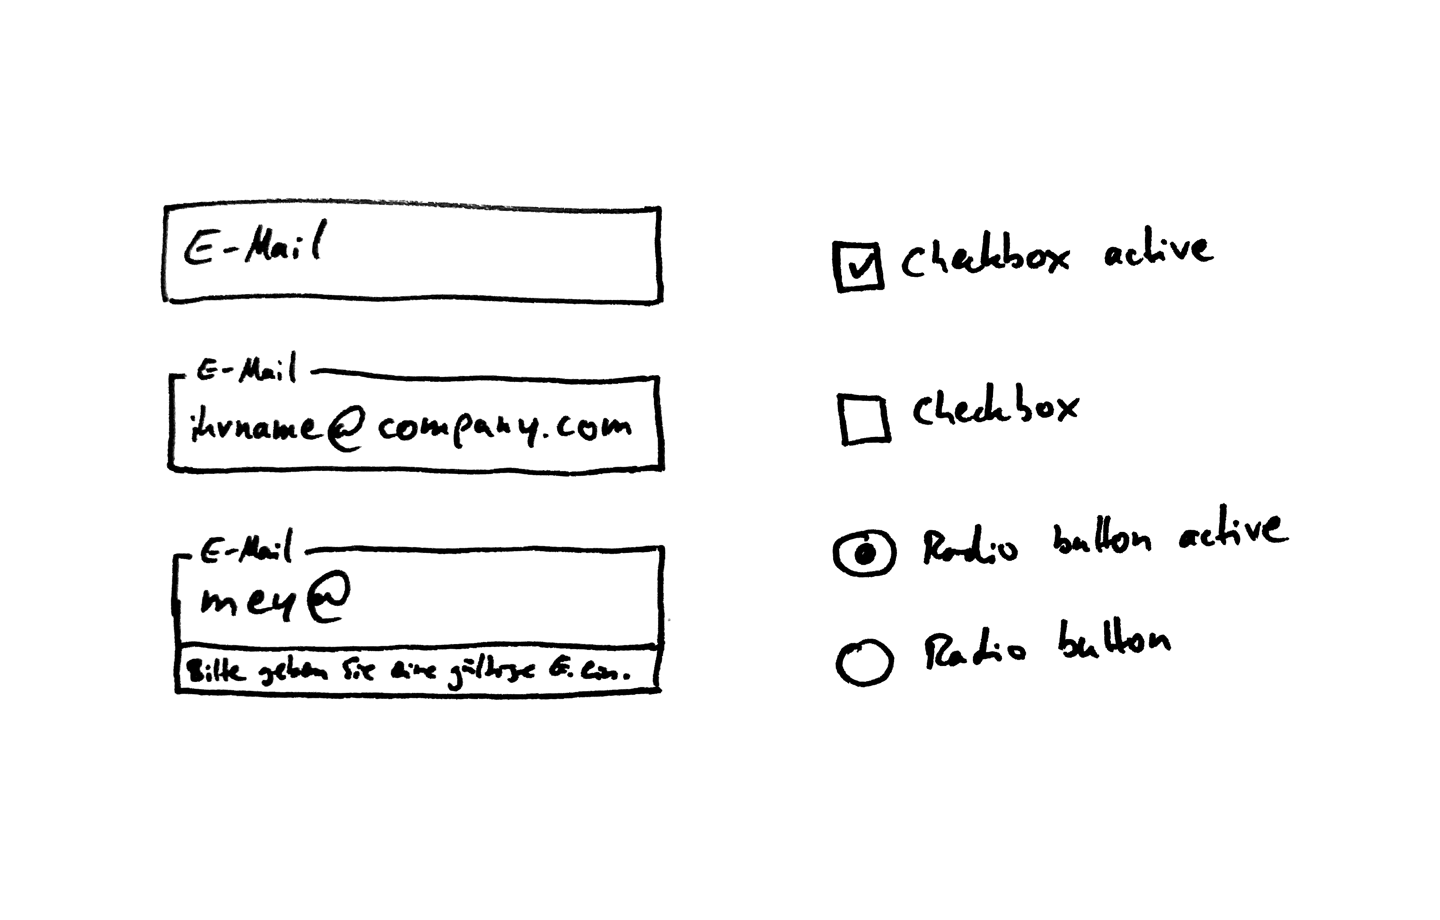 E-Mail
E-Mail
ihrname@company.com
E-Mail
mey@
Bitte geben Sie eine gültige E. ein.
Checkbox active
Checkbox
Radio button active
Radio button